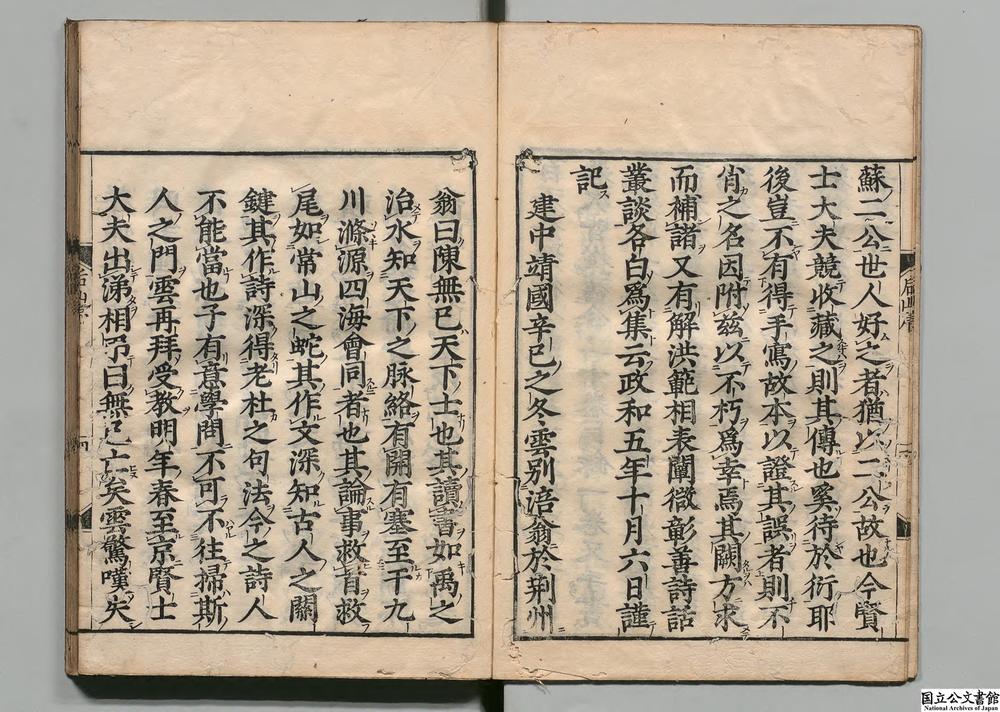 蘇二公世人好之者猶以二公故也今賢
士大夫競收藏之則其傳也奚待於衍耶
後豈不有得手寫故本以證其誤者則不
肖之名因附茲以不朽爲幸焉其闕方求
而補諸又有解洪範相表闡微彰善詩話
叢談各自爲集云政和五年十月六日謹
記
建中靖國辛巳之冬雲別涪翁於荆州
翁曰陳無己天下士也其讀書如禹之
治水知天下之脉絡有開有塞至于九
川滌源四海會同者也其論事救首救
尾如常山之蛇其作文深知古人之關
鍵其作詩深得老杜之句法今之詩人
不能當也子有意學問不可不往掃斯
人之門雲再拜受教明年春至京賢士
大夫出涕相弔曰無己亡矣雲驚嘆失
国立公文書館
National Archives of Japan